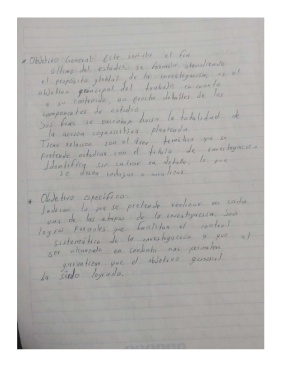 * Objetivo General: Este sería el fin
último del estudio, se formula atendiendo
el propósito global de la investigación, es el
objetivo principal del trabajo en cuanto
a su contenido, no precisa detalles de los
componentes de estudio.
Sus fines se orientan hacia la totalidad de
la acción cognoscitiva planteada.
Tiene relación con el área temática que se
pretende estudiar, con el título de investigación.
Identifica sin entrar en detalle, lo que
se desea indagar o analizar.
* Objetivo específico:
Indican lo que se pretende realizar en cada
una de las etapas de la investigación. Son
logros parciales que facilitan el control
sistemático de la investigación y que al
ser alcanzado en conjunto nos permiten
garantizar que el objetivo general
ha sido logrado.